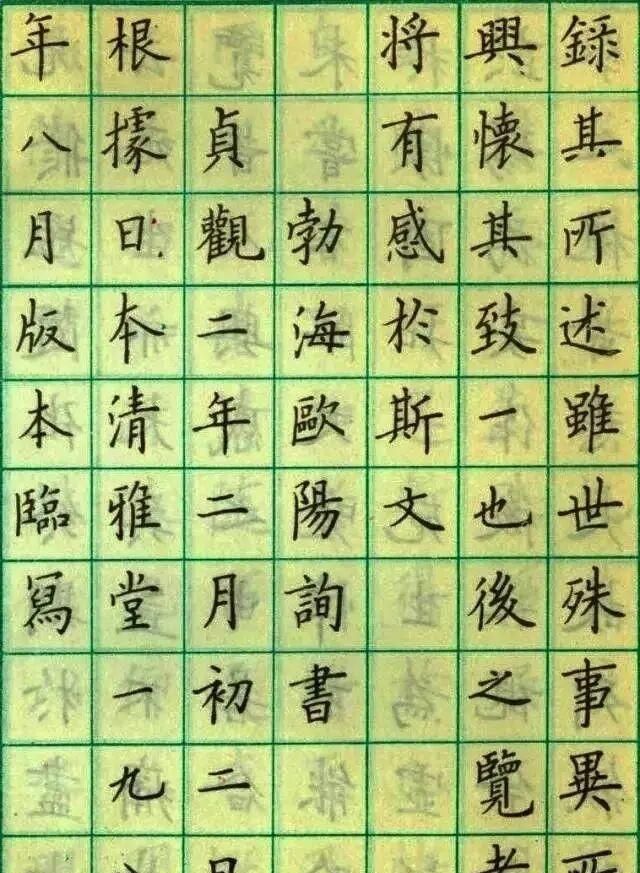 錄其所述雖世殊事異所
興懷其致一也後之覽者
将有感於斯文
勃海歐陽詢書
貞觀二年二月初二日
根據日本清雅堂一九
年八月版本臨寫